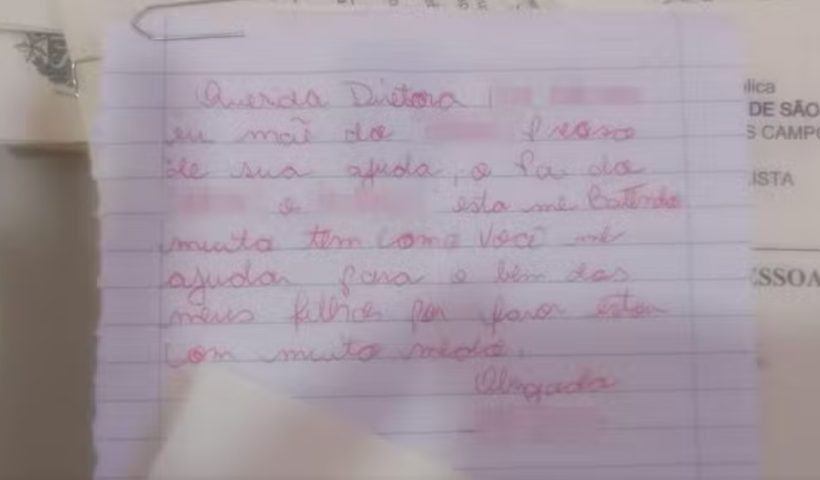 Querida Diretora
eu mãe do Preciso
de sua ajuda, o Pai do
e esta me Batendo
muito tem como você me
ajudar para o bem dos
meus filhos por favor estou
com muito medo.
Obrigada
lica
DE SÃO
S CAMPO
ISTA
ESSOA